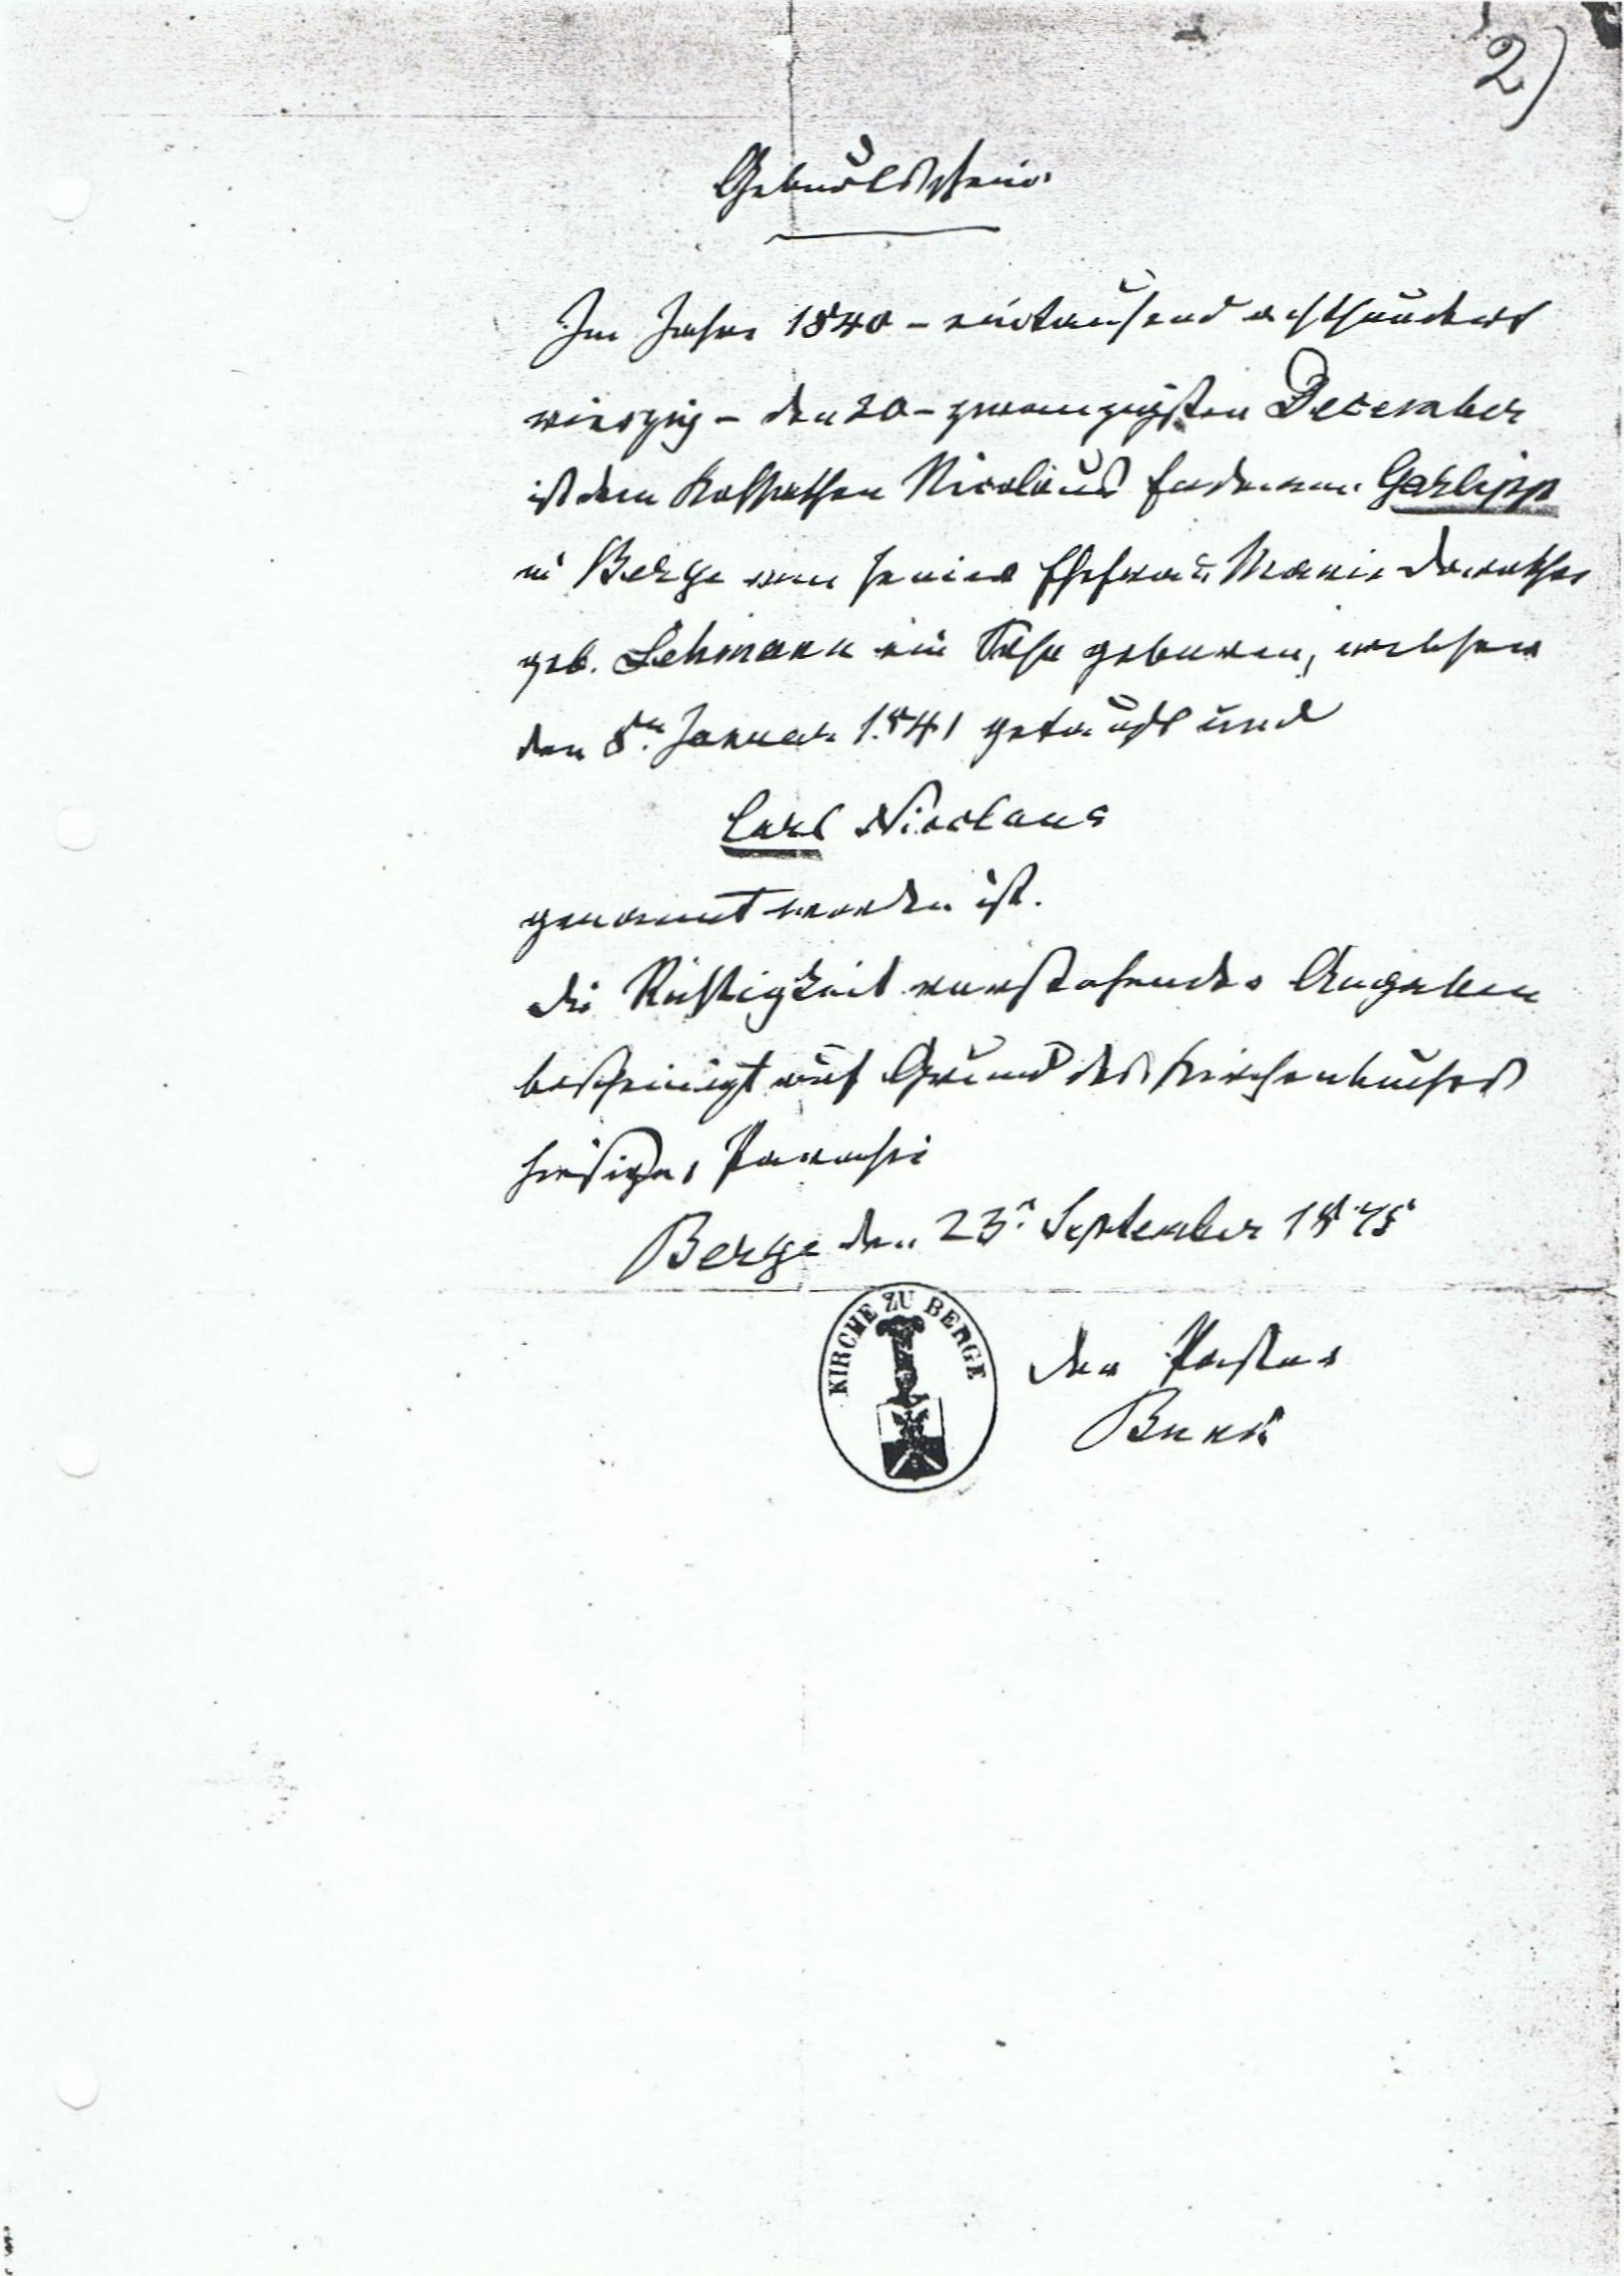 2)
Geburtsschein
Im Jahre 1840 – eintausend achthundert
vierzig – den 20 – zwanzigsten December
ist dem Kossathen Nicolaus Garlipp
in Berge von seiner Ehefrau Marie Dorothee
geb. Lehmann ein Sohn geboren, welcher
den 8ten Januar 1841 getauft und
Carl Nicolaus
genannt worden ist.
Die Richtigkeit vorstehender Angaben
bescheinigt auf Grund des Kirchenbuches
hiesiger Parochie
Berge den 23n September 1875
KIRCHE ZU BERGE
Der Pastor